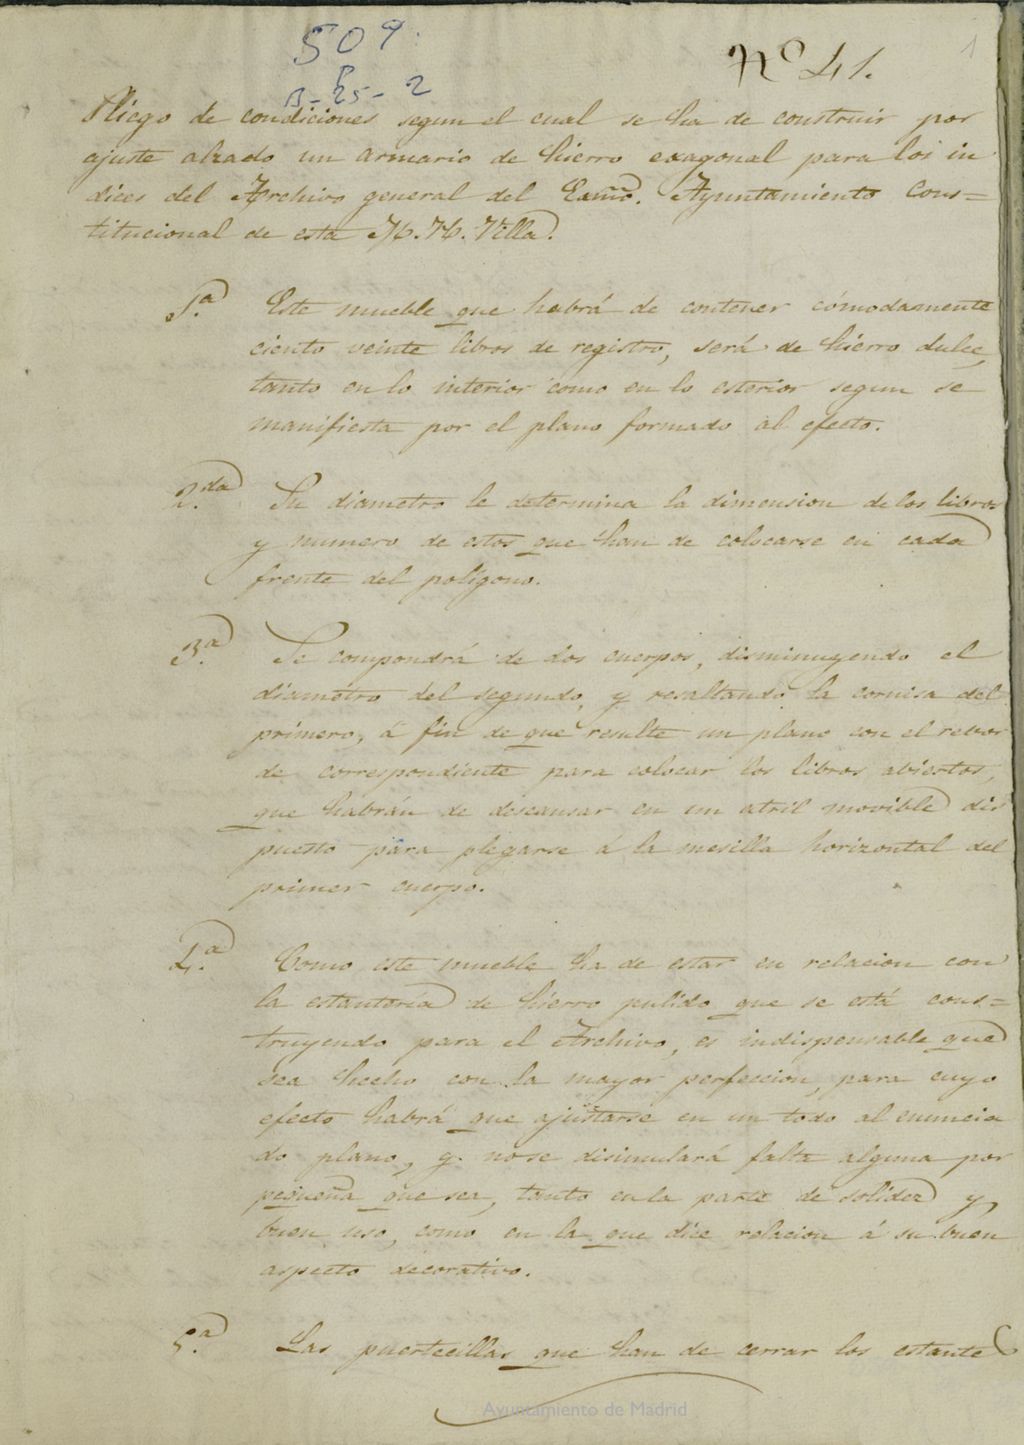 509.
B-25-2
Nº 41.
1
Pliego de condiciones segun el cual se ha de construir por
ajuste alzado un armario de hierro exagonal para los in
dices del Archivo general del Exmo. Ayuntamiento Cons=
titucional de esta M. H. Villa.
1.ª Este mueble que habrá de contener cómodamente
ciento veinte libros de registro, será de hierro dulce,
tanto en lo interior como en lo esterior segun se
manifiesta por el plano formado al efecto.
2.da Su diametro le determina la dimension de los libros
y numero de estos que han de colocarse en cada
frente del polígono.
3.ª Se compondrá de dos cuerpos, disminuyendo el
diametro del segundo, y resaltando la cornisa del
primero, á fin de que resulte un plano con el rebor
de correspondiente para colocar los libros abiertos,
que habrán de descansar en un atril movible dis
puesto para plegarse á la mesilla horizontal del
primer cuerpo.
4.ª Como este mueble ha de estar en relacion con
la estantería de hierro pulido que se está cons=
truyendo para el Archivo, es indispensable que
sea hecho con la mayor perfeccion, para cuyo
efecto habrá que ajustarse en un todo al enuncia
do plano, y no se disimulará falta alguna por
pequeña que sea, tanto en la parte de solidez y
buen uso, como en la que dice relacion á su buen
aspecto decorativo.
5.ª Las puertecillas que han de cerrar los estantes
Ayuntamiento de Madrid